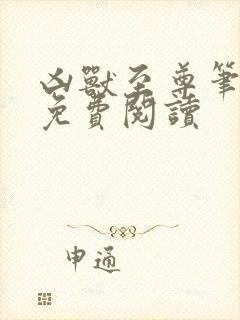 凶獸至尊筆
免費閱讀
申通